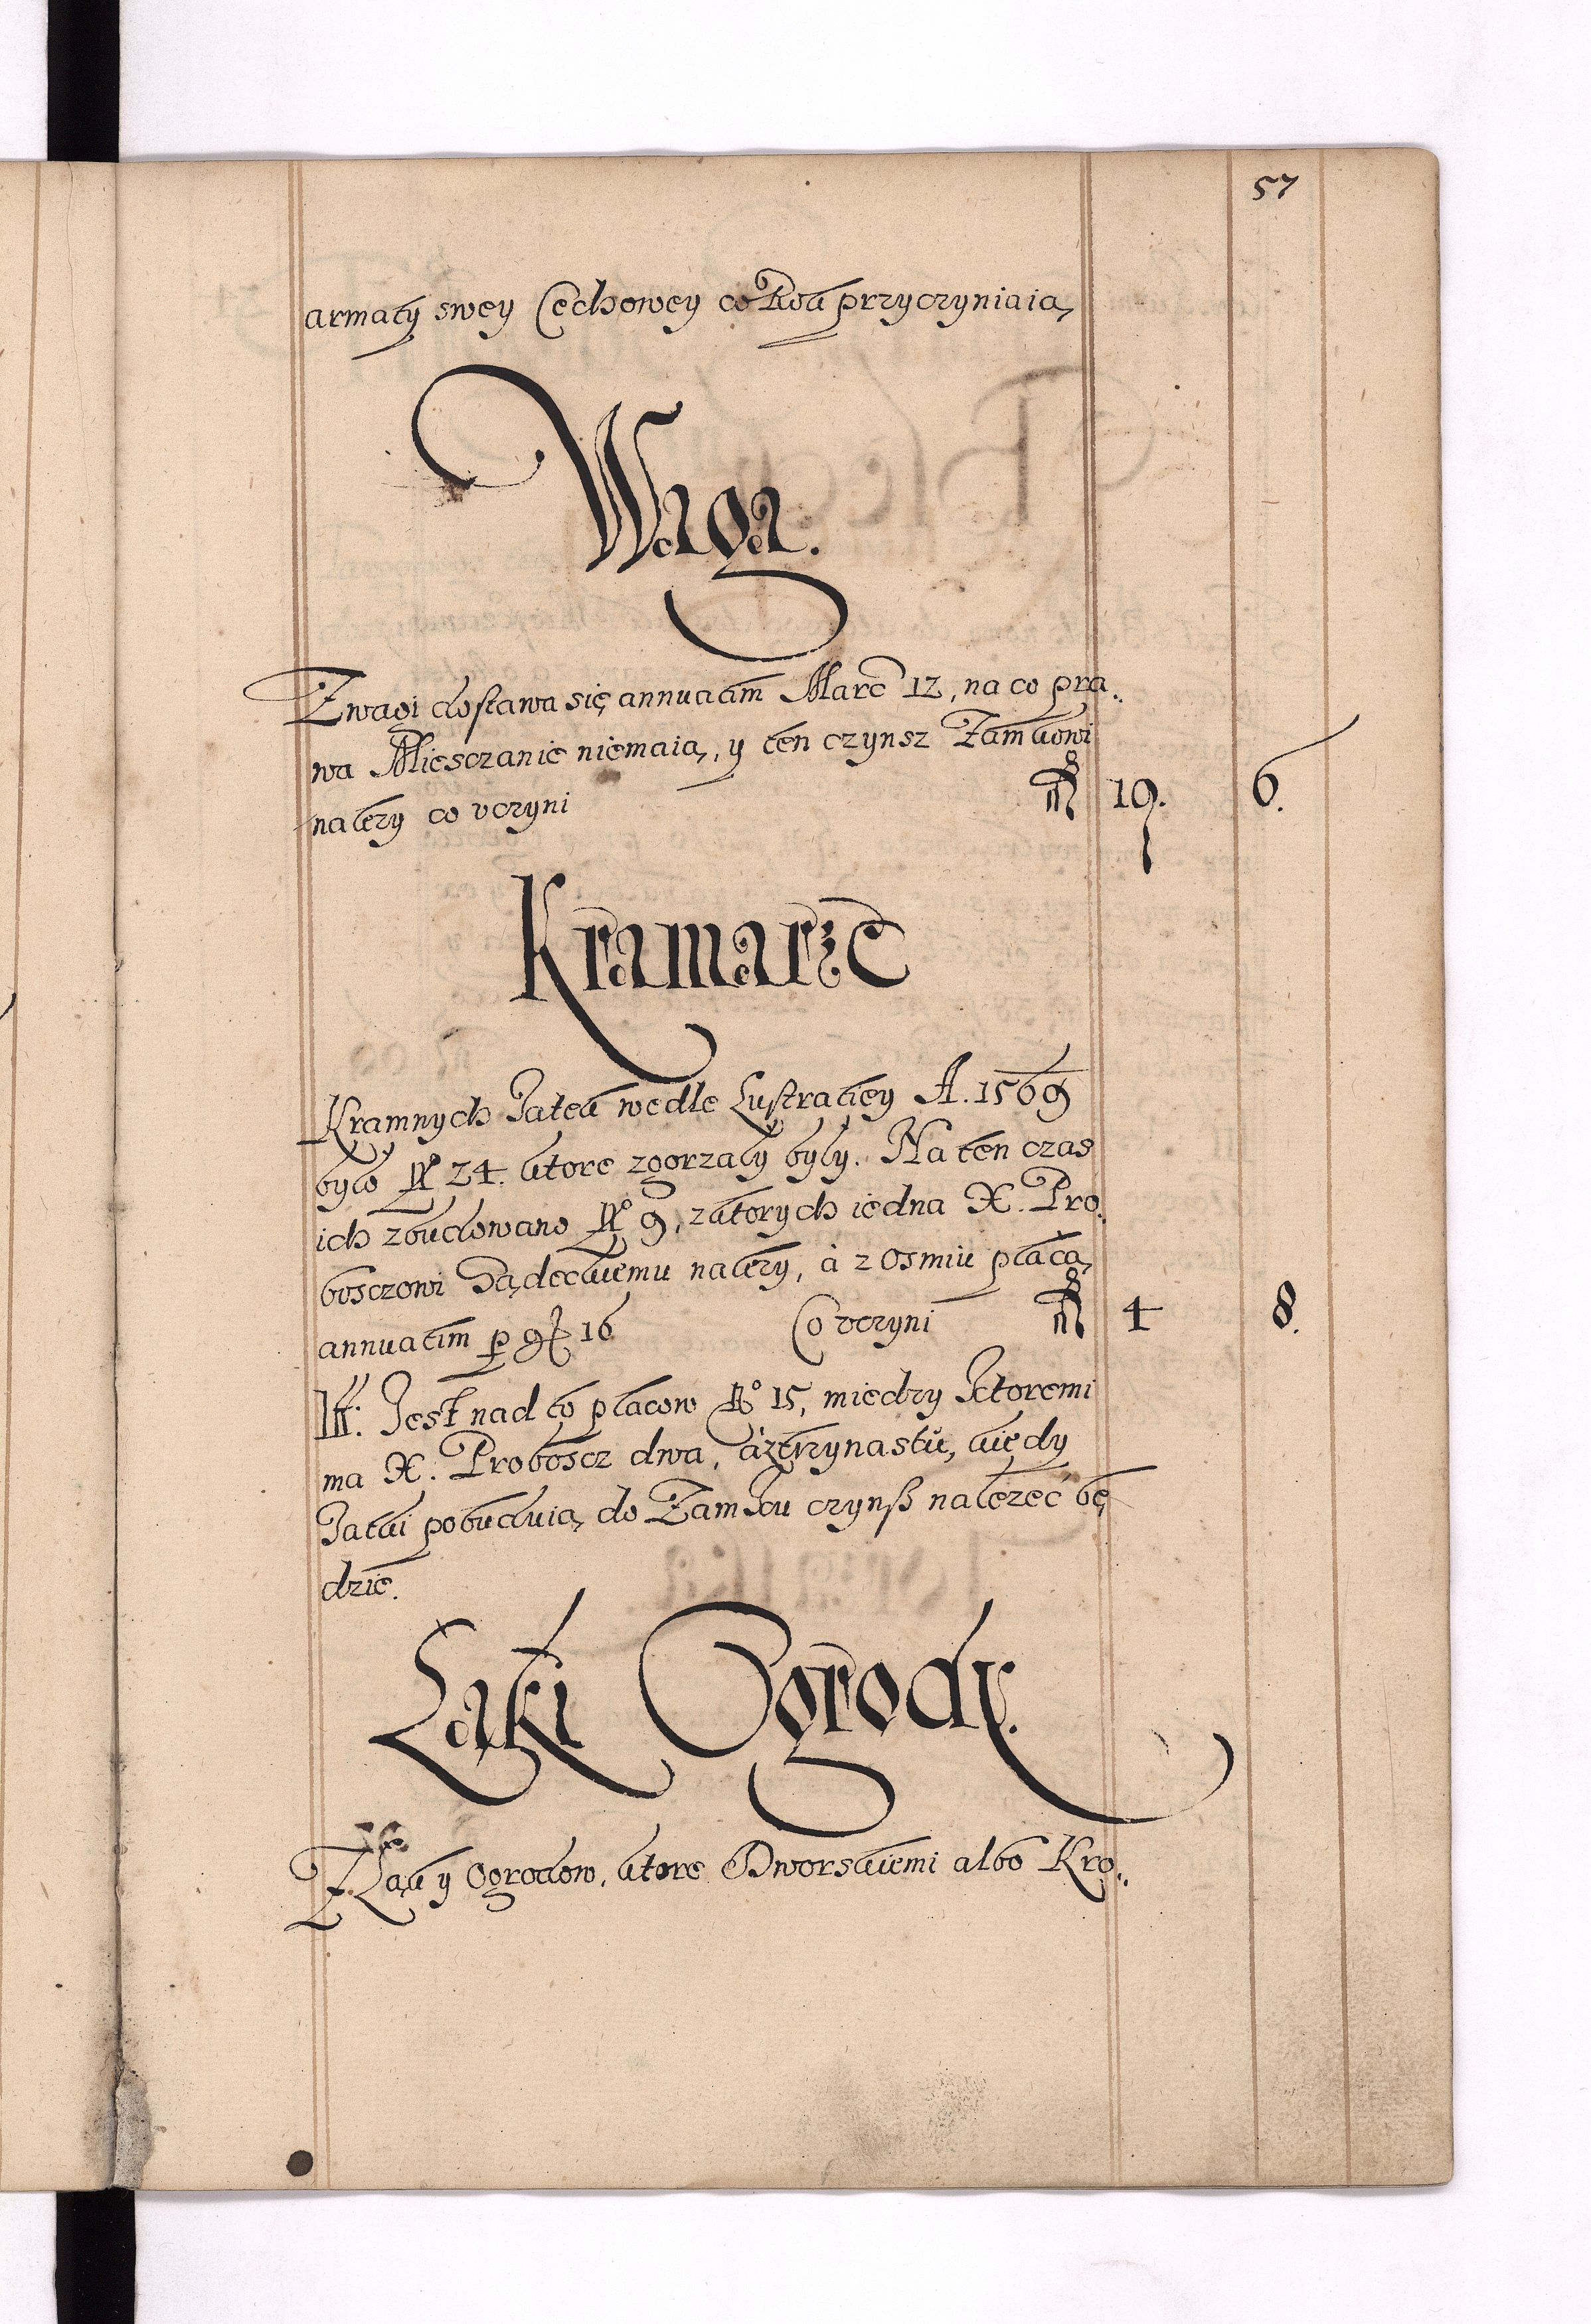 57
armaty swey Cechowey co Rok przyczyniaią
Waga.
Z wagi dostawa się annuatim Marc 12, na co pra„
wa Miesczanie niemaią, y ten czynsz Zamkowi
należy co uczyni fl 19. 6.
Kramarze
Kramnych Jatek wedle Lustraciey A. 1569
było No 24. ktore zgorzały były. Na ten czas
ich zbudowano No 9, z ktorych iedna X. Pro„
bosczowi Sądeckiemu należy, à z Osmiu płacą
annuatim p gr 16 Co uczyni fl 4 8.
Itt: Jest nad to placow No 15, miedzy Ktoremi
ma X: Proboscz dwa, à z trzynastu, kiedy
Jatki pobuduią, do Zamku czynß należeć bę
dzie.
Łąki Ogrody.
Z Łąk y Ogrodow, ktore Dworskiemi albo Kro„